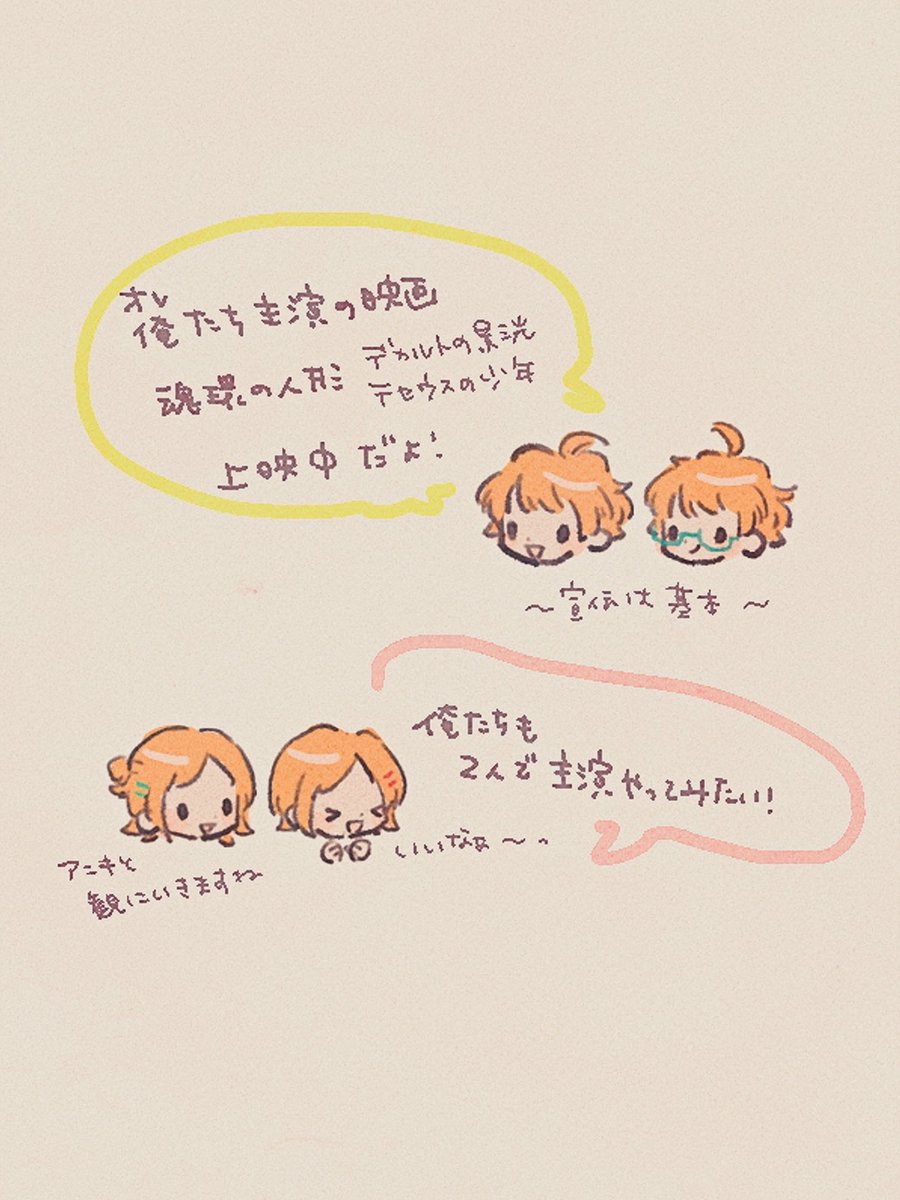 オレ
俺たち主演の映画
魂環の人形 デカルトの景洸
テセウスの少年
上映中だよ!
〜宣伝は基本〜
俺たちも
2人で主演やってみたい!
いいなぁ〜っ
アニキと
観にいきますね